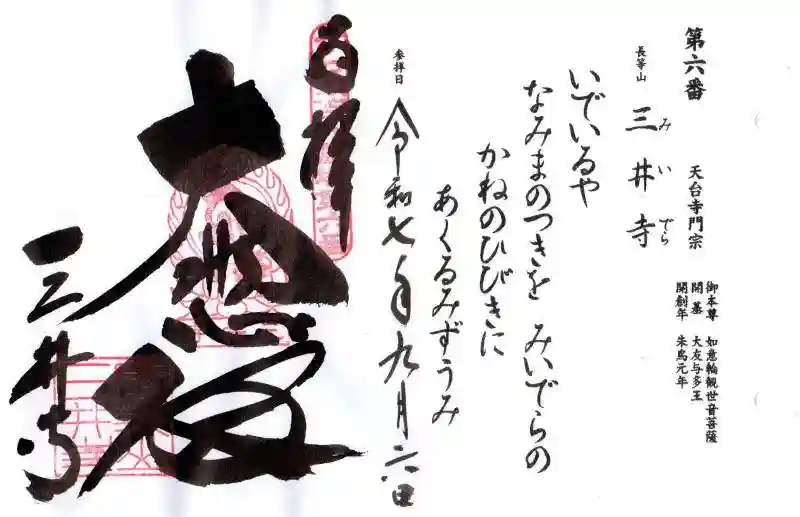 第六番 天台寺門宗
御本尊 如意輪観世音菩薩
開基 大友与多王
開創年 朱鳥元年
長等山 三井寺
みいでら
いでいるや
なみまのつきを みいでらの
かねのひびきに
あくるみずうみ
参拝日
令和七年九月六日
奉拝
大悲殿
三井寺